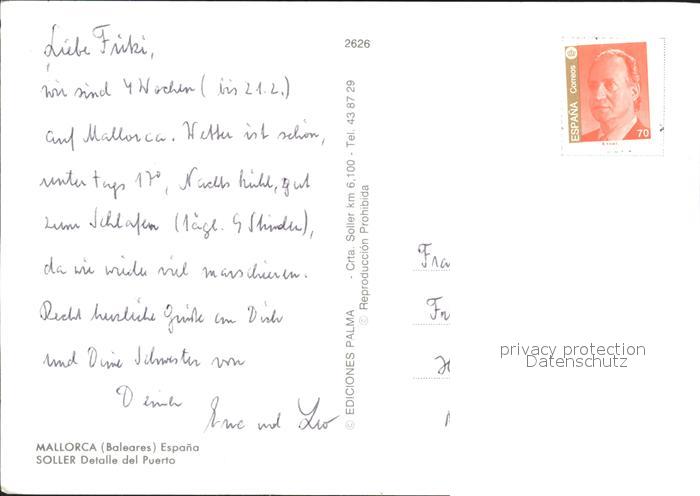 Liebe Friki,
wir sind 4 Wochen (bis 21.2.)
auf Mallorca. Wetter ist schön,
untertags 17°, Nachts kühl, gut
zum Schlafen (tägl. 9 Stunden),
da wir wieder viel marschieren.
Recht herzliche Grüße an Dich
und Deine Schwester von
Deiner
und Leo
MALLORCA (Baleares) España
SOLLER Detalle del Puerto
2626
© EDICIONES PALMA - Crta. Soller km 6,100 - Tel. 43 87 29
© Reproducción Prohibida
ESPAÑA Correos
70
Fra
Fr
privacy protection
Datenschutz